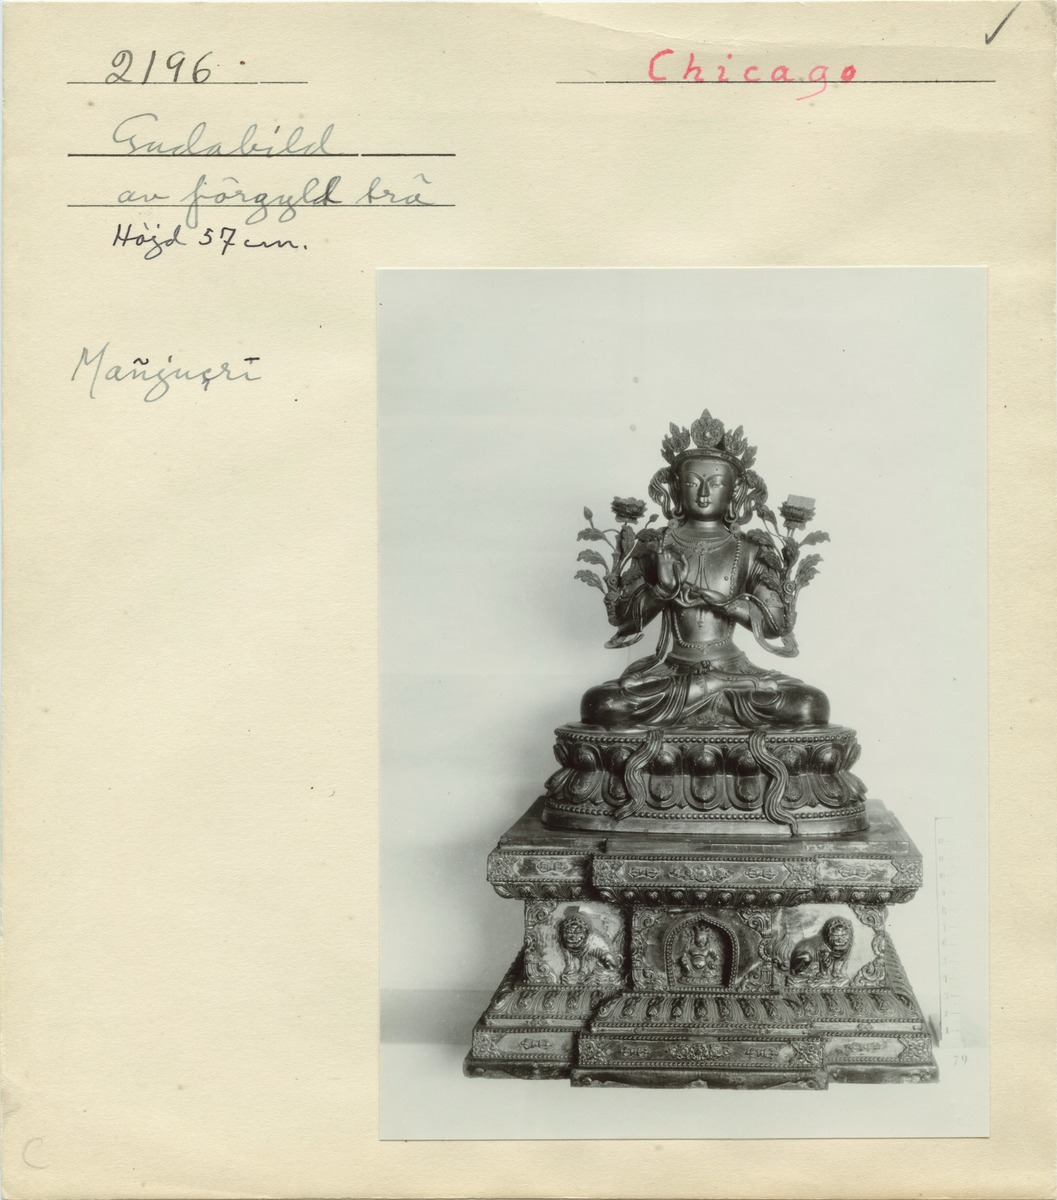 2196
Chicago
Gudabild
av förgyld trä
Höjd 57 cm.
Mañjuçrī
79
C